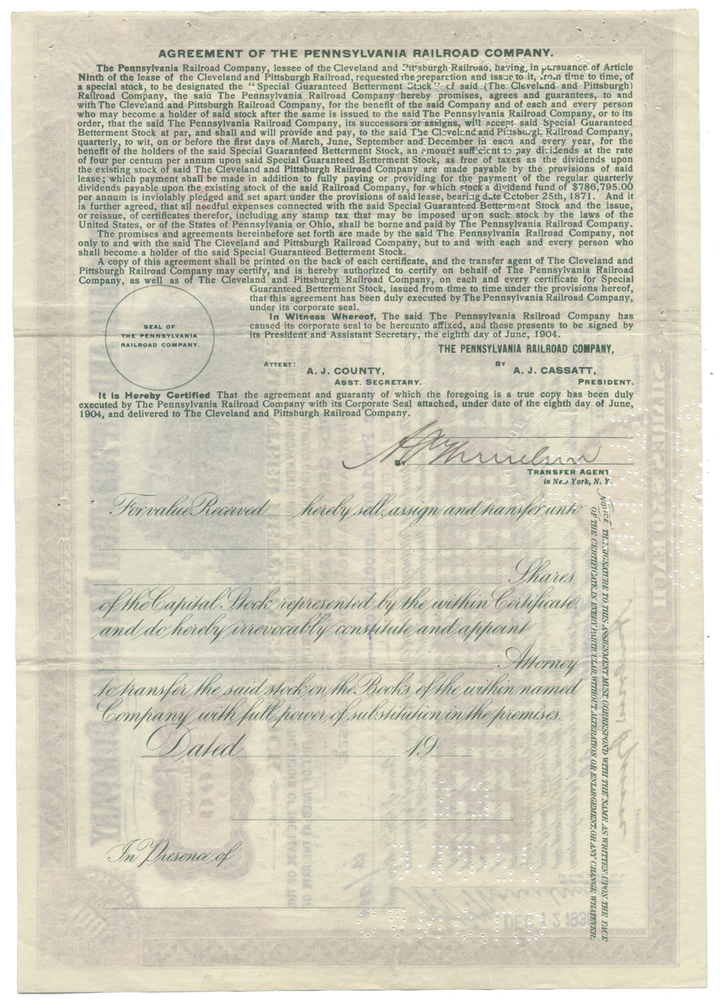 AGREEMENT OF THE PENNSYLVANIA RAILROAD COMPANY.
The Pennsylvania Railroad Company, lessee of the Cleveland and Pittsburgh Railroad, having, in pursuance of Article
Ninth of the lease of the Cleveland and Pittsburgh Railroad, requested the preparation and issue to it, from time to time, of
a special stock, to be designated the "Special Guaranteed Betterment Stock" of said (The Cleveland and Pittsburgh)
Railroad Company, the said The Pennsylvania Railroad Company hereby promises, agrees and guarantees, to and
with The Cleveland and Pittsburgh Railroad Company, for the benefit of the said Company and of each and every person
who may become a holder of said stock after the same is issued to the said The Pennsylvania Railroad Company, or to its
order, that the said The Pennsylvania Railroad Company, its successors or assigns, will accept said Special Guaranteed
Betterment Stock at par, and shall and will provide and pay, to the said The Cleveland and Pittsburgh Railroad Company,
quarterly, to wit, on or before the first days of March, June, September and December in each and every year, for the
benefit of the holders of the said Special Guaranteed Betterment Stock, an amount sufficient to pay dividends at the rate
of four per centum per annum upon said Special Guaranteed Betterment Stock, as free of taxes as the dividends upon
the existing stock of said The Cleveland and Pittsburgh Railroad Company are made payable by the provisions of said
lease; which payment shall be made in addition to fully paying or providing for the payment of the regular quarterly
dividends payable upon the existing stock of the said Railroad Company, for which stock a dividend fund of $786,795.00
per annum is inviolably pledged and set apart under the provisions of said lease, bearing date October 25th, 1871. And it
is further agreed, that all needful expenses connected with the said Special Guaranteed Betterment Stock and the issue,
or reissue, of certificates therefor, including any stamp tax that may be imposed upon such stock by the laws of the
United States, or of the States of Pennsylvania or Ohio, shall be borne and paid by The Pennsylvania Railroad Company.
The promises and agreements hereinbefore set forth are made by the said The Pennsylvania Railroad Company, not
only to and with the said The Cleveland and Pittsburgh Railroad Company, but to and with each and every person who
shall become a holder of the said Special Guaranteed Betterment Stock.
A copy of this agreement shall be printed on the back of each certificate, and the transfer agent of The Cleveland and
Pittsburgh Railroad Company may certify, and is hereby authorized to certify on behalf of The Pennsylvania Railroad
Company, as well as of The Cleveland and Pittsburgh Railroad Company, on each and every certificate for Special
Guaranteed Betterment Stock, issued from time to time under the provisions hereof,
that this agreement has been duly executed by The Pennsylvania Railroad Company,
under its corporate seal.
In Witness Whereof, The said The Pennsylvania Railroad Company has
caused its corporate seal to be hereunto affixed, and these presents to be signed by
its President and Assistant Secretary, the eighth day of June, 1904.
SEAL OF
THE PENNSYLVANIA
RAILROAD COMPANY.
THE PENNSYLVANIA RAILROAD COMPANY,
ATTEST: BY
A. J. COUNTY, A. J. CASSATT,
ASST. SECRETARY. PRESIDENT.
It is Hereby Certified That the agreement and guaranty of which the foregoing is a true copy has been duly
executed by The Pennsylvania Railroad Company with its Corporate Seal attached, under date of the eighth day of June,
1904, and delivered to The Cleveland and Pittsburgh Railroad Company.
BY
TRANSFER AGENT
in New York, N. Y.
For value Received hereby sell, assign and transfer unto
Shares
of the Capital Stock represented by the within Certificate,
and do hereby irrevocably constitute and appoint
Attorney
to transfer the said stock on the Books of the within named
Company with full power of substitution in the premises.
Dated 19
In Presence of
NOTICE. THE SIGNATURE TO THIS ASSIGNMENT MUST CORRESPOND WITH THE NAME AS WRITTEN UPON THE FACE
OF THE CERTIFICATE IN EVERY PARTICULAR WITHOUT ALTERATION OR ENLARGEMENT, OR ANY CHANGE WHATEVER.